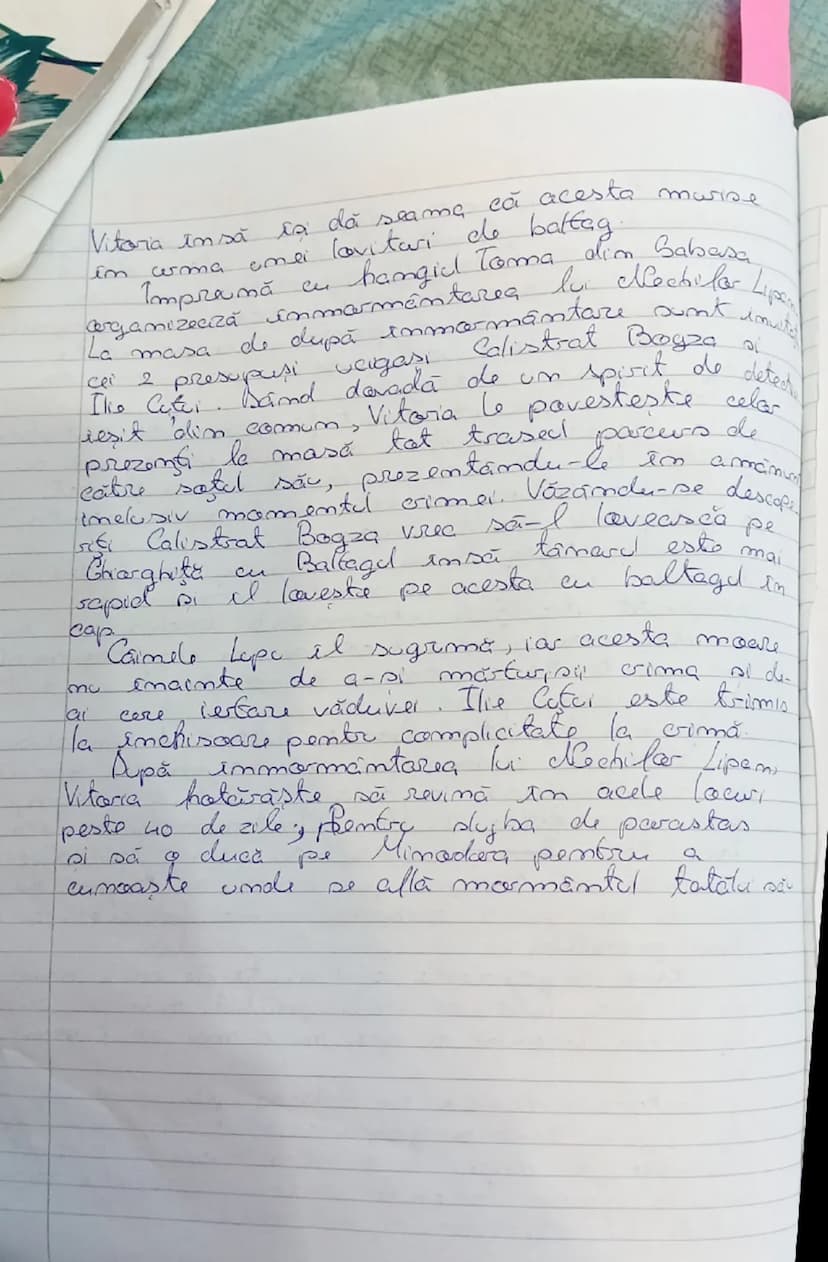 Vitoria însă își dă seama că acesta murise
în urma unei lovituri de baltag.
Împreună cu hangiul Toma din Sabasa
organizează înmormântarea lui Nechifor Lipan
La masa de după înmormântare sunt invitați
cei 2 presupuși ucigași Calistrat Bogza și
Ilie Cuțui. Dând dovadă de un spirit de detectiv
ieșit din comun, Vitoria le povestește celor
prezenți la masă tot traseul parcurs de
către soțul său, prezentându-le în amănunt
inclusiv momentul crimei. Văzându-se descope-
riți Calistrat Bogza vrea să-l lovească pe
Ghiorghiță cu Baltagul însă tânărul este mai
rapid și îl lovește pe acesta cu baltagul în
cap.
Câinele Lupu îl sugrumă, iar acesta moare
nu înainte de a-și mărturisii crima și de-
ai cere iertare văduvei. Ilie Cuțui este trimis
la închisoare pentru complicitate la crimă.
După înmormântarea lui Nechifor Lipan,
Vitoria hotărăște să revină în acele locuri
peste 40 de zile, pentru slujba de parastas
și să o ducă pe Minodora pentru a
cunoaște unde se află mormântul tatălu său